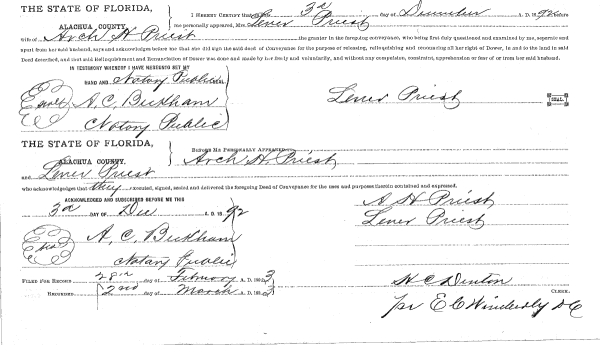 THE STATE OF FLORIDA,
ALACHUA COUNTY.
I HEREBY CERTIFY that on this 3d day of December A. D. 1892 before
me personally appeared, Mrs. Lener Priest
wife of Arch H Priest the grantor in the foregoing conveyance, who being first duly questioned and examined by me, separate and
apart from her said husband, says and acknowledges before me that she did sign the said deed of Conveyance for the purpose of releasing, relinquishing and renouncing all her right of Dower, in and to the land in said
Deed described, and that said Relinquishment and Renunciation of Dower was done and made by her freely and voluntarily, and without any compulsion, constraint, apprehension or fear of or from her said husband.
IN TESTIMONY WHEREOF I HAVE HEREUNTO SET MY
HAND AND Notary Public
A. C. Buckham
Notary Public
Lener Priest
SEAL.
THE STATE OF FLORIDA,
ALACHUA COUNTY.
BEFORE ME PERSONALLY APPEARED Arch H. Priest
and Lener Priest
who acknowledges that they executed, signed, sealed and delivered the foregoing Deed of Conveyance for the uses and purposes therein contained and expressed.
ACKNOWLEDGED AND SUBSCRIBED BEFORE ME THIS
3d DAY OF Dec A. D. 1892
A H Priest
Lener Priest
A. C. Buckham
Notary Public
FILED FOR RECORD 28th day of February A. D. 1893
H C Denton
RECORDED 2nd day of March A. D. 1893
CLERK.
pr E C Winderly D C